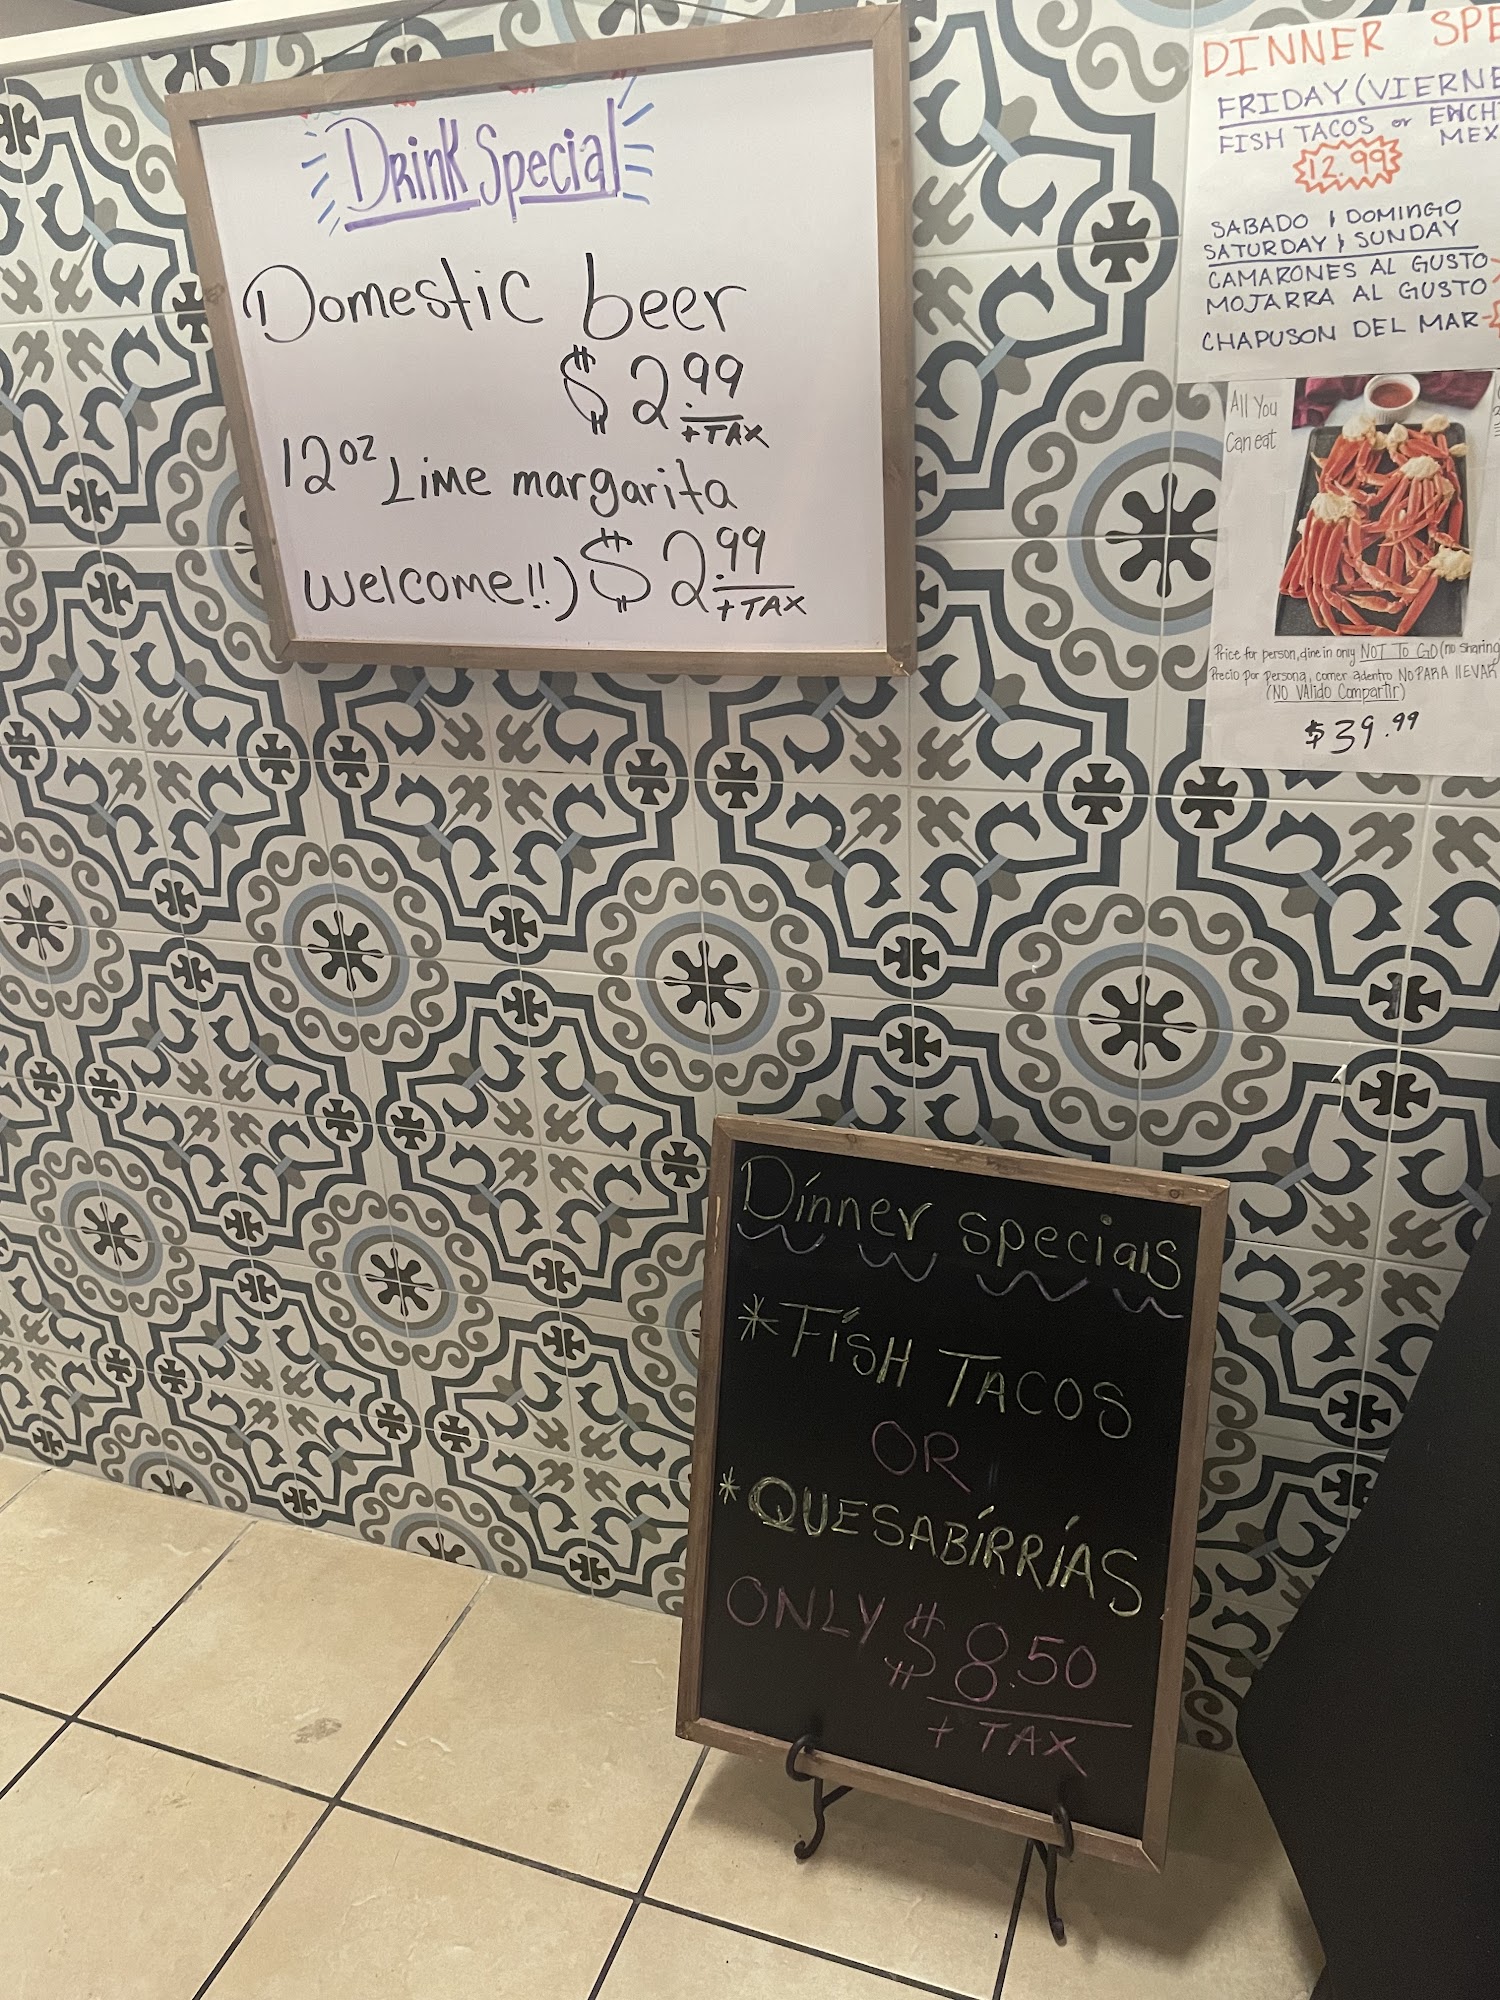 Drink Special
Domestic beer
$2.99
+TAX
12oz Lime margarita
welcome!!) $2.99
+TAX
DINNER
FRIDAY (VIERNE
FISH TACOS or ENCH
MEX
12.99
SABADO & DOMINGO
SATURDAY & SUNDAY
CAMARONES AL GUSTO
MOJARRA AL GUSTO
CHAPUSON DEL MAR
All You
Can eat
Price for person, dine in only NOT TO GO (no sharing
Precio por persona, comer adentro NO PARA llEVAR
(NO VAlido Compartir)
$39.99
Dinner specials
*FISH TACOS
OR
*QUESABIRRIAS
ONLY $8.50
+ TAX